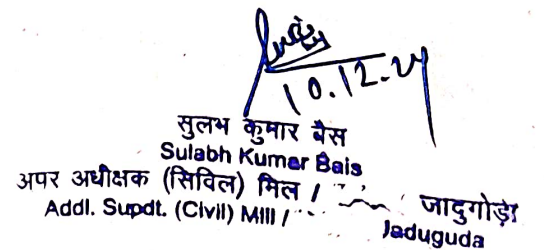 10.12.24
सुलभ कुमार बैस
Sulabh Kumar Bais
अपर अधीक्षक (सिविल) मिल / जादुगोड़ा
Addl. Supdt. (Civil) Mill / Jaduguda